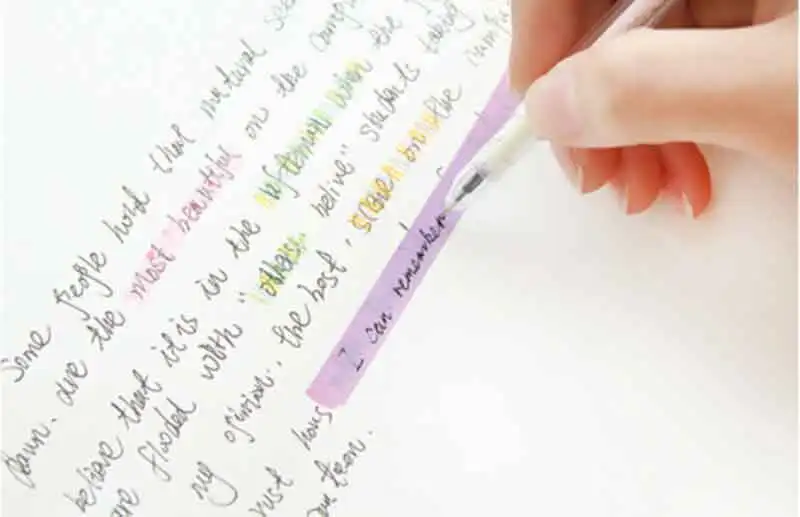 Some people hold that natural
dawn. are the most beautiful on the
believe that it is in the afternoon when the
are flooded with "others. belive" students taking
my opinion., the best "scene on the
I can remember